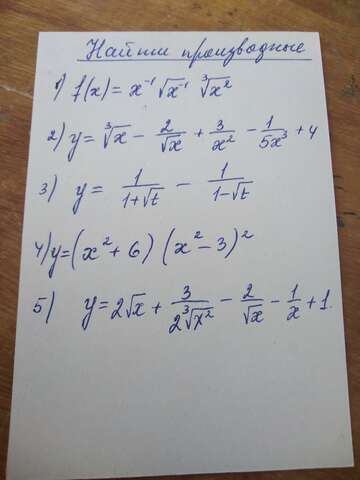 Найти производные
1) f(x) = x⁻¹ √x⁻¹ ∛x²
2) y = ∛x − 2/√x + 3/x² − 1/5x³ + 4
3) y = 1/(1+√t) − 1/(1−√t)
4) y = (x² + 6) (x² − 3)²
5) y = 2√x + 3/2∛x² − 2/√x − 1/x + 1.